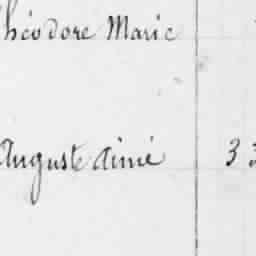 Théodore Marie
Auguste Aimé 33